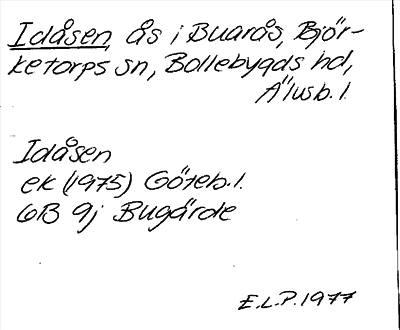 Idåsen, ås i Buarås, Björ-
ketorps sn, Bollebygds hd,
Älvsb. l.
Idåsen
ek (1975) Göteb. l.
6B 9j Bugärde
E.L.P. 1977